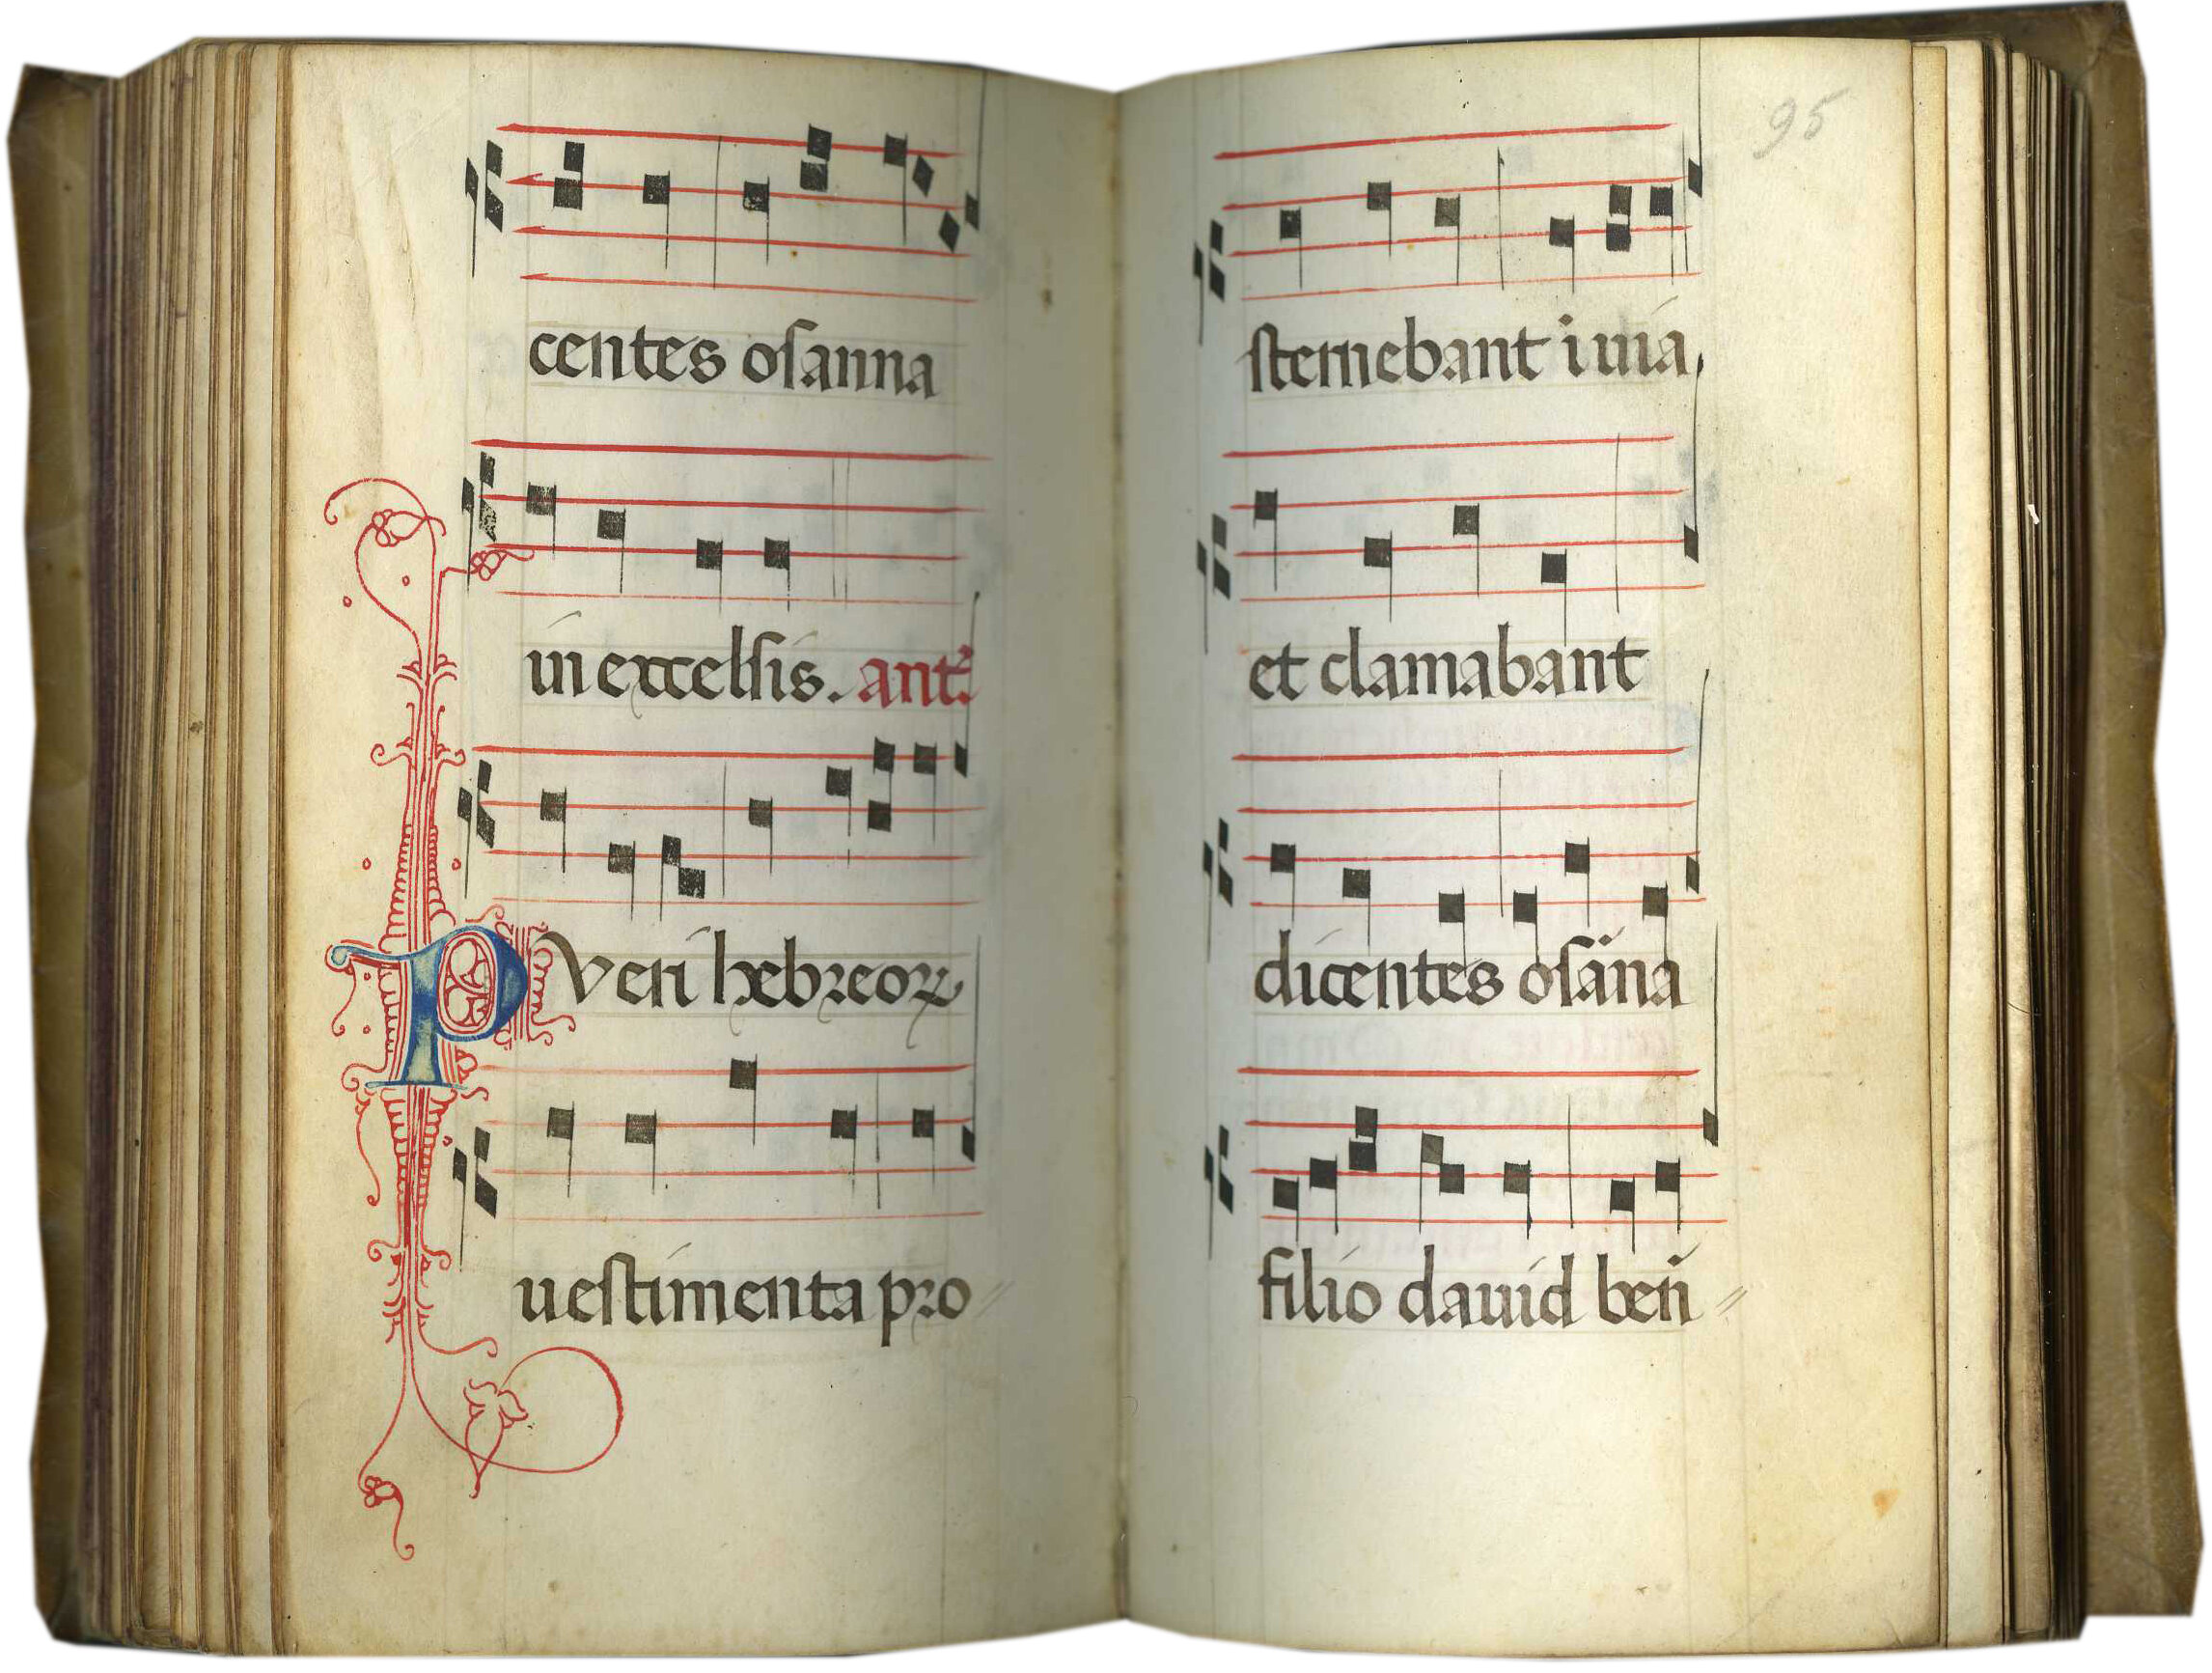 centes osanna
in excelsis. ant̄.
Pveri hebreoꝝ
uestimenta pro
95
sternebant i uia,
et clamabant
dicentes osāna
filio dauid ben̄